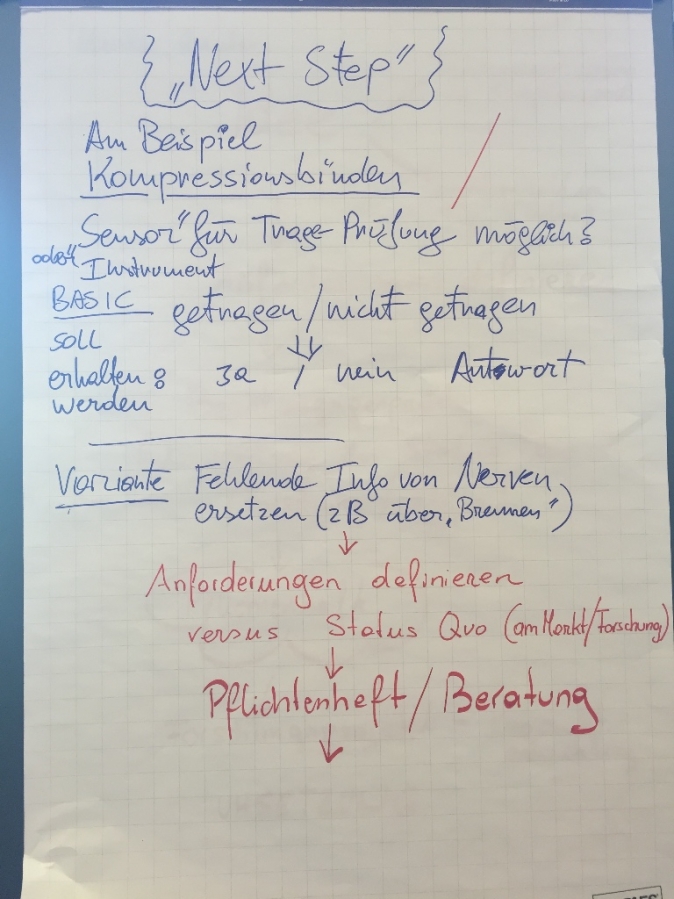 „Next Step"
Am Beispiel
Kompressionsbinden
Sensor" für Trage-Prüfung möglich?
oder" Instrument
BASIC getragen / nicht getragen
soll
erhalten: Ja / nein Antwort
werden
Variante Fehlende Info von Nerven
ersetzen (zB über „Brennen")
Anforderungen definieren
versus Status Quo (am Markt/Forschung)
Pflichtenheft / Beratung